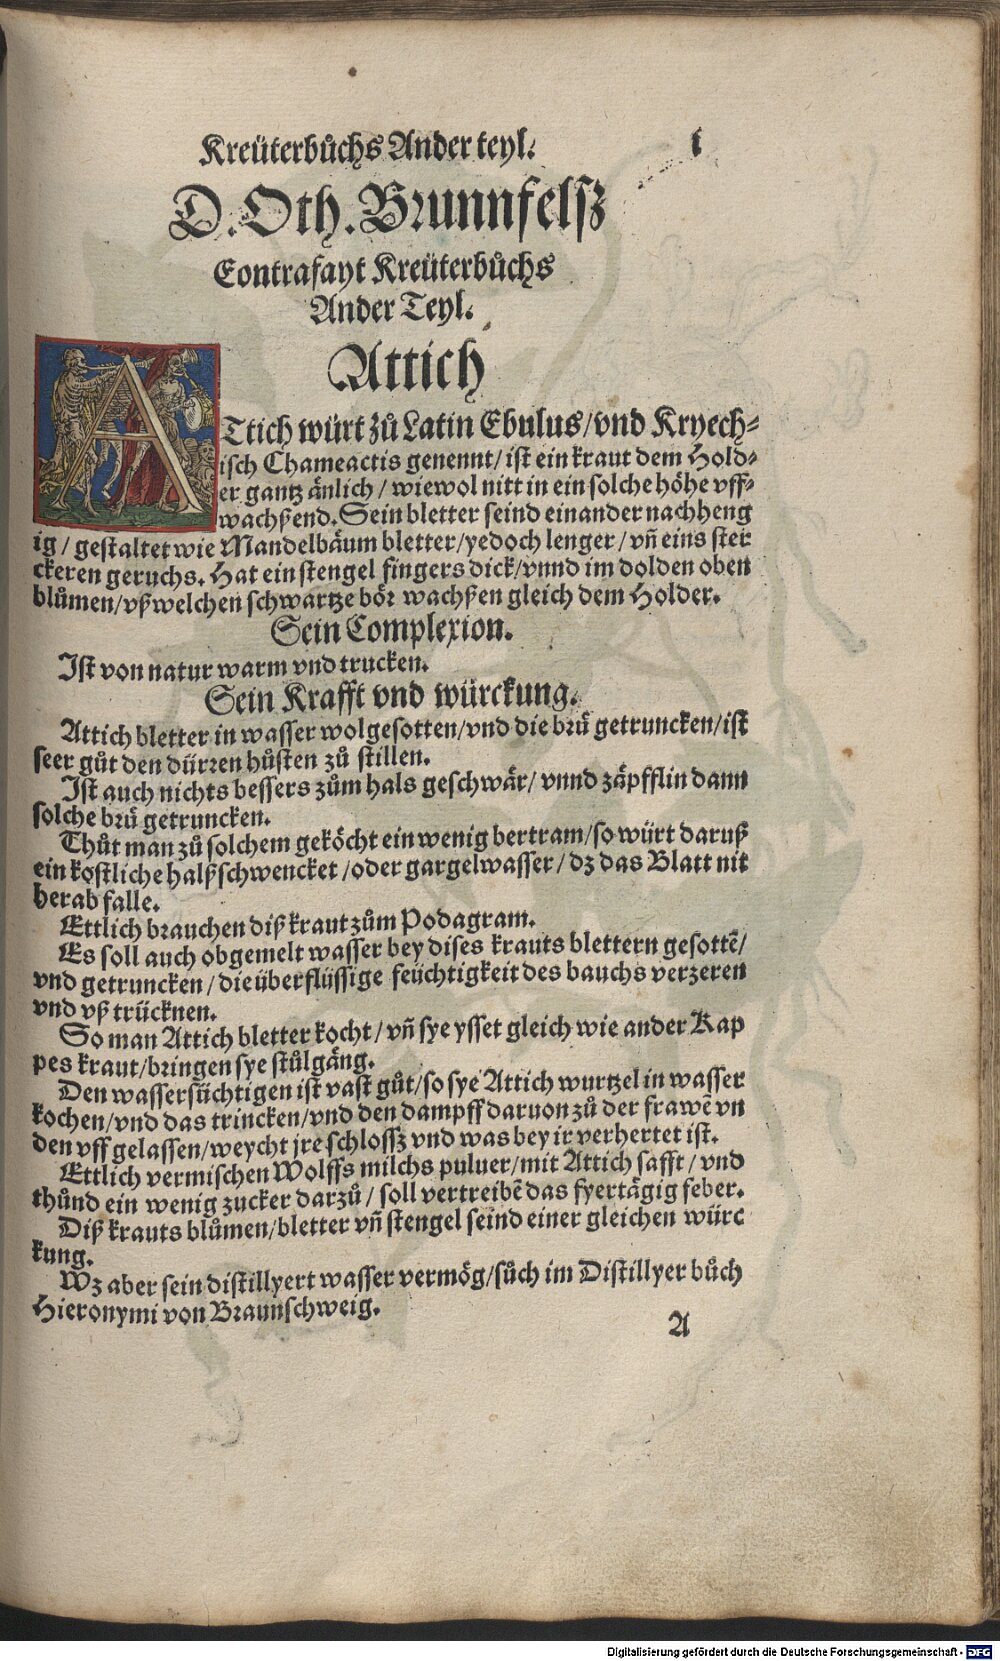 Kreüterbůchs Ander teyl.
1
D. Oth. Brunnfelsz
Contrafayt Kreüterbůchs
Ander Teyl.
Attich
ATtich würt zů Latin Ebulus/vnd Kryech-
isch Chameactis genennt/ ist ein kraut dem Hold-
er gantz änlich / wiewol nitt in ein solche höhe vff-
wachßend. Sein bletter seind einander nachheng
ig / gestaltet wie Mandelbäum bletter/yedoch lenger/ vñ eins ster
ckeren geruchs. Hat ein stengel fingers dick/vnnd im dolden oben
blůmen/vß welchen schwartze bör wachßen gleich dem Holder.
Sein Complexion.
Ist von natur warm vnd trucken.
Sein Krafft vnd würckung.
Attich bletter in wasser wolgesotten/vnd die brü getruncken/ist
seer gůt den dürren hůsten zů stillen.
Ist auch nichts bessers zům hals geschwär/ vnnd zäpfflin dann
solche brü getruncken.
Thůt man zů solchem geköcht ein wenig bertram/so würt daruß
ein kostliche halßschwencket /oder gargelwasser/ dz das Blatt nit
herab falle.
Ettlich brauchen diß kraut zům Podagram.
Es soll auch obgemelt wasser bey dises krauts blettern gesottẽ/
vnd getruncken/die überflüssige feüchtigkeit des bauchs verzeren
vnd vß trücknen.
So man Attich bletter kocht/ vñ sye ysset gleich wie ander Kap
pes kraut/bringen sye stůlgäng.
Den wassersüchtigen ist vast gůt/so sye Attich wurtzel in wasser
kochen/vnd das trincken/vnd den dampff daruon zů der frawẽ vn
den vff gelassen/weycht jre schlossz vnd was bey ir verhertet ist.
Ettlich vermischen Wolffs milchs puluer/mit Attich safft / vnd
thůnd ein wenig zucker darzů / soll vertreibẽ das fyertägig feber.
Diß krauts blůmen/bletter vñ stengel seind einer gleichen würc
kung.
Wz aber sein distillyert wasser vermög/sůch im Distillyer bůch
Hieronymi von Braunschweig.
A
Digitalisierung gefördert durch die Deutsche Forschungsgemeinschaft - DFG